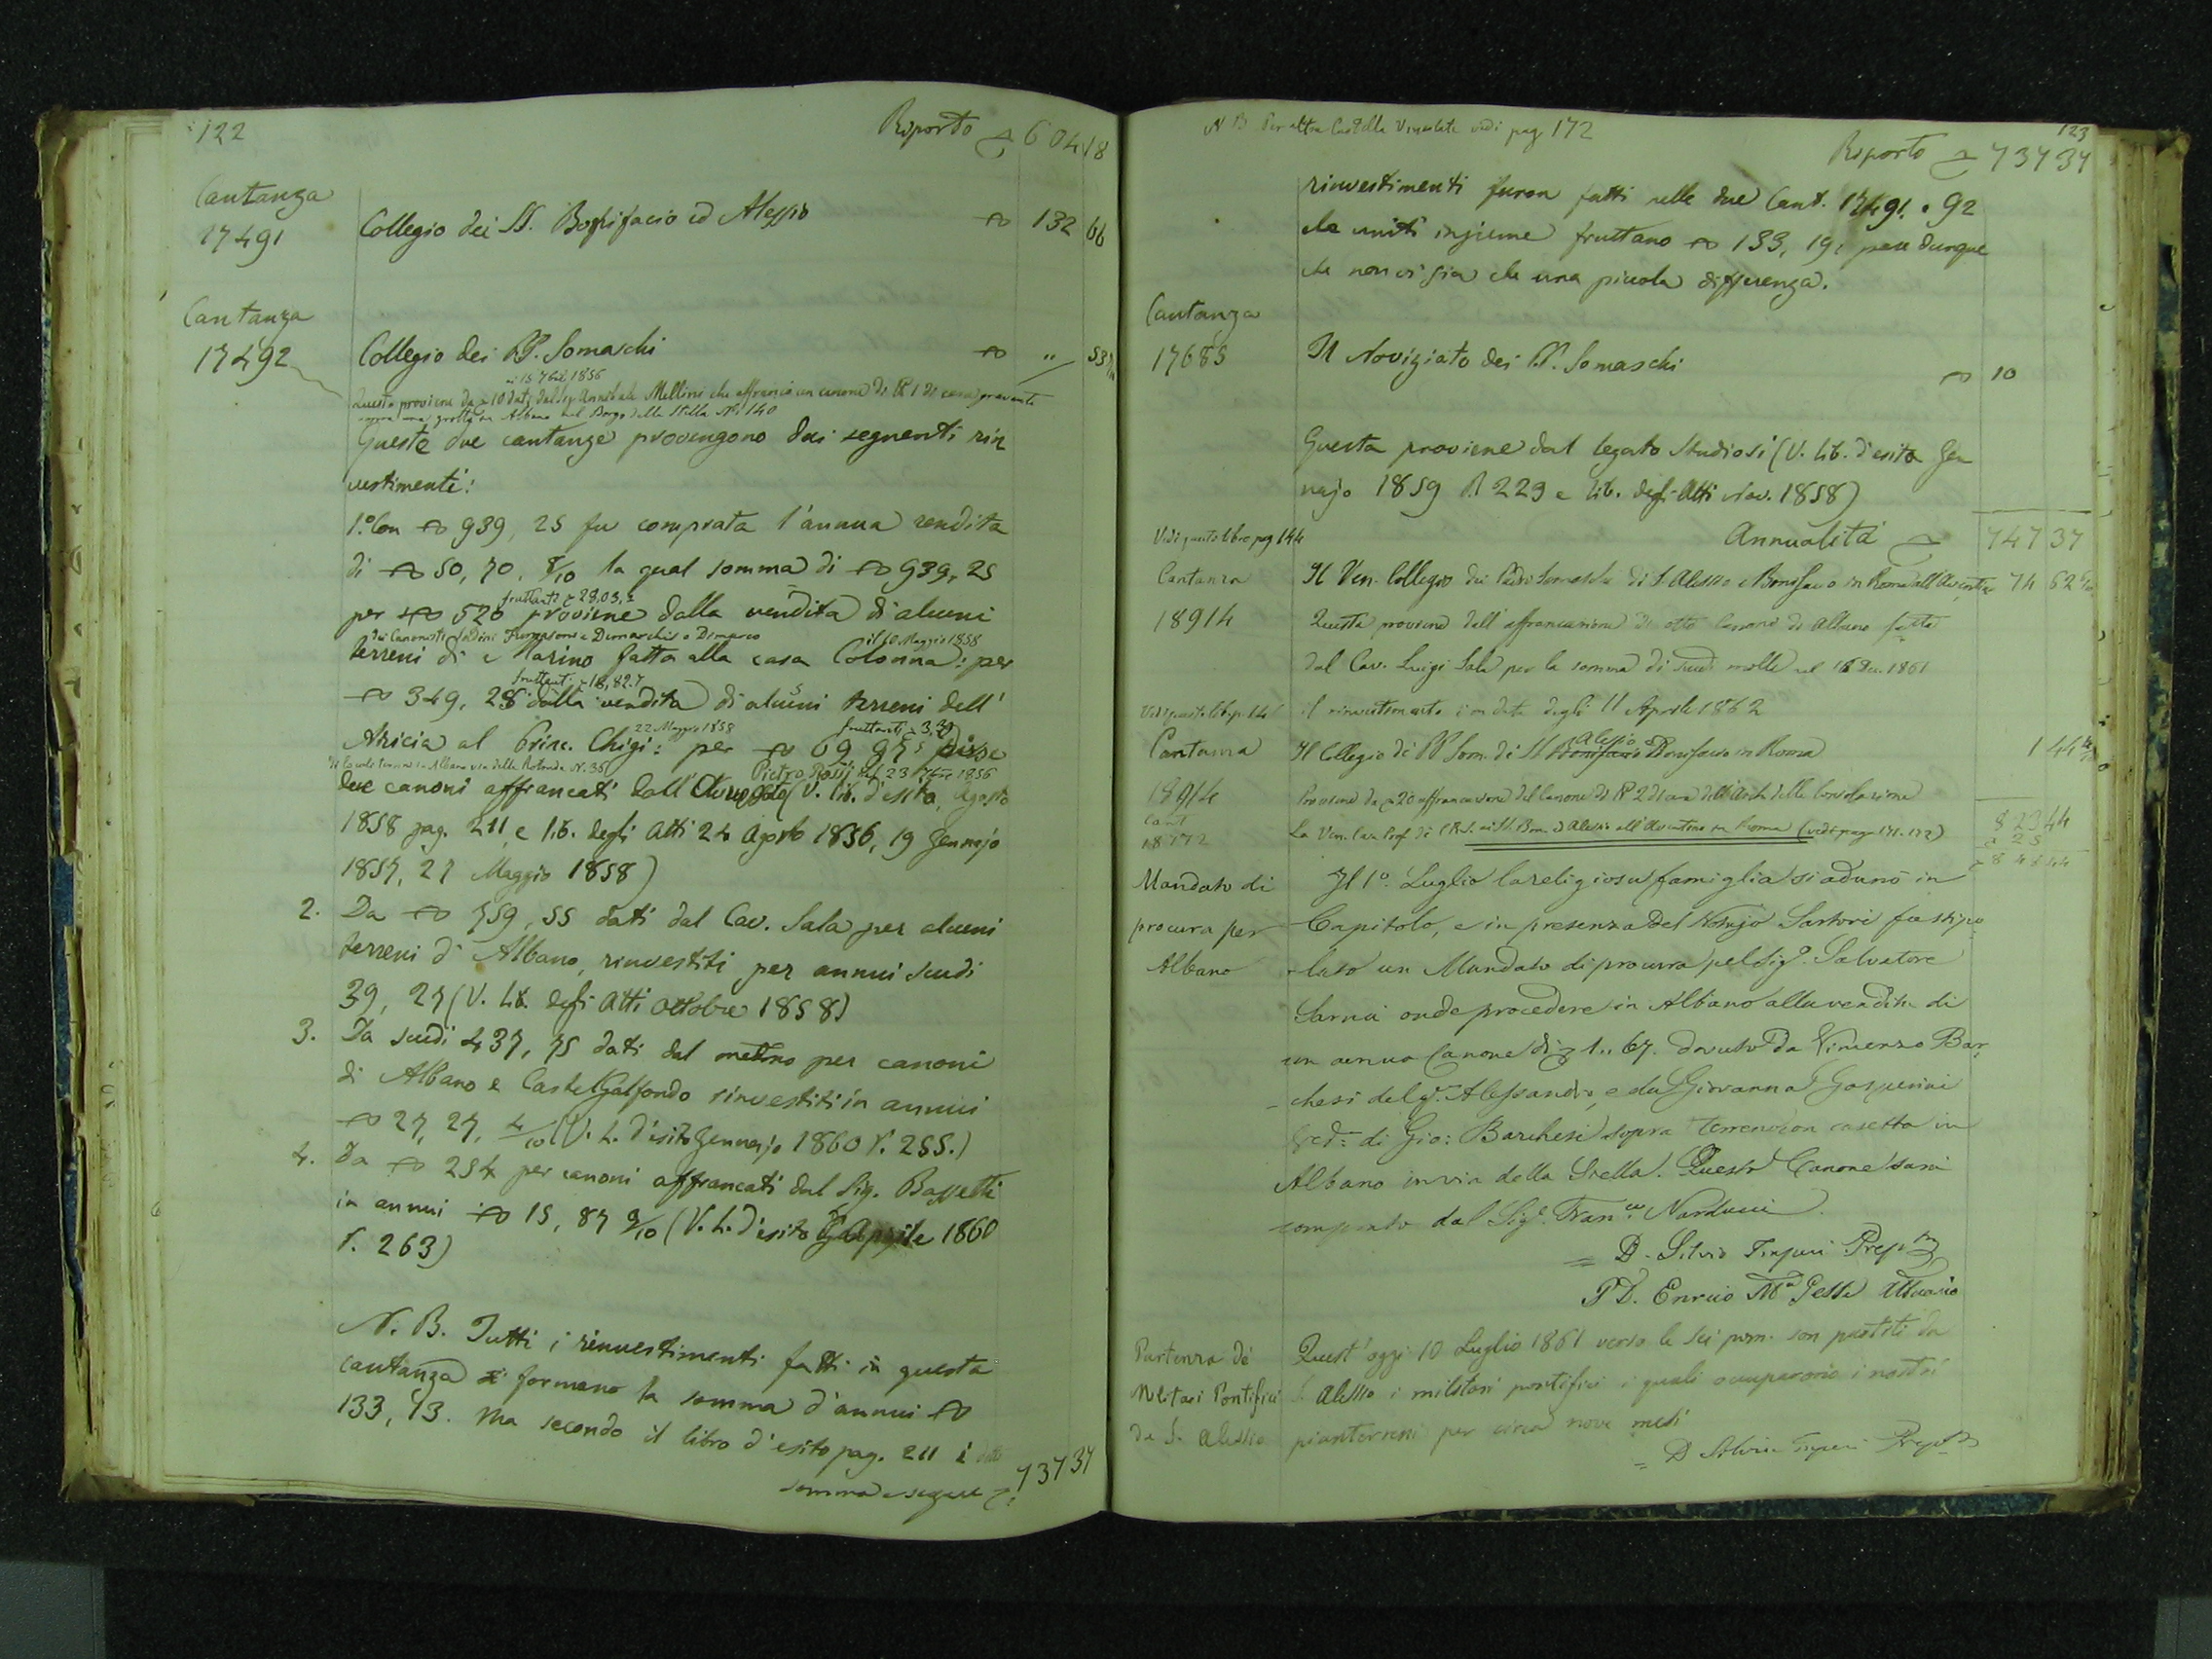 122
Riporto 604 18
Cantanza
17491
Collegio dei SS. Bonifacio ed Alessio 132 66
Cantanza
17492
Collegio dei PP. Somaschi " 53
ai 15 7bre 1856
Questo proviene da 10 dati dal Sig. Annibale Mellini che affrancò un canone di 1 di cera gravante
sopra una grotta in Albano nel Borgo della Stella N. 140
Queste due cantanze provengono dai seguenti rin
vestimenti:
1.º Con 939, 25 fu comprata l'annua rendita
di 50, 70, 8/10 la qual somma di 939, 25
fruttanti 28.03
per 520 proviene dalla vendita di alcuni
dei Canonisti il 10 Maggio 1858
terreni di Marino fatta alla casa Colonna: per
fruttanti 18,82.7
349, 28 dalla vendita di alcuni terreni dell'
22 Maggio 1858 fruttanti 3,
Aricia al Princ. Chigi: per 69 975
in Albano via della Rotonda N. 36 Pietro Rossi nel 23 7bre 1856
due canoni affrancati dall' (V. lib. d'esito, Agosto
1858 pag. 211, e lib. degli Atti 24 Agosto 1856, 19 Gennajo
1857, 27 Maggio 1858)
2. Da 759, 55 dati dal Cav. Sala per alcuni
terreni d'Albano, rinvestiti per annui scudi
39, 27 (V. Lib. degli Atti ottobre 1858)
3. Da scudi 437, 75 dati dal med.mo per canoni
di Albano e Castel Galfondo rinvestiti in annui
27, 27, 4/10 (V. L. d'esito Gennajo 1860 P. 255.)
4. Da 254 per canoni affrancati dal Sig. Bassetti
in annui 15, 87 9/10 (V. L. d'esito Aprile 1860
P. 263)
N. B. Tutti i rinvestimenti fatti in questa
cantanza formano la somma d'annui
133, 13. Ma secondo il libro d'esito pag. 211 i detti
somma e segue 737 37
N B Per altra Cartella Vincolata vedi pag 172
123
Riporto 737 37
rinvestimenti furon fatti nelle due Cant. 17491. e 92
che uniti insieme fruttano 133, 19: pare dunque
che non vi sia che una piccola differenza.
Cantanza
17685
Il Noviziato dei PP. Somaschi 10
Questa proviene dal legato Studiosi (V. lib. d'esito Gen
najo 1859 P. 229 e lib. degli Atti Nov. 1858)
Annualità 747 37
Vedi questo libro pag 144
Cantanza
18914
Il Ven. Collegio dei Padri Somaschi di S. Alessio e Bonifacio in Roma all'Aventino 74 62
Questa proviene dall'affrancazione di otto Canoni di Albano fatta
dal Cav. Luigi Sala per la somma di scudi mille nel 16 1861
Vedi questo lib. p. 146
il rinvestimento è in data degli 11 Aprile 1862
Cantanza
18914
Il Collegio di PP Som. di SS Bonifacio Alessio e Bonifacio in Roma 1 44
Proviene da 20 affrancazione del Canone di 2 di cera dell'Arch. della Consolazione
Cant
18772
La Ven. Casa Prof. di C.R.S. ai SS. Bon. ed Alessio all'Aventino in Roma (vedi pag. 171-172)
823 44
25
848 44
Mandato di
procura per
Albano
Il 1º. Luglio la religiosa famiglia si adunò in
Capitolo, e in presenza del Notajo Sartori fu stipo
lato un Mandato di procura pel Sig.e Salvatore
Sarnia onde procedere in Albano alla vendita di
un annuo Canone di 1.. 67. dovuto da Vincenzo Bar
chesi del q.m Alessandro, e da Giovanna Gasperini
Ved.a di Gio: Barchesi sopra terreno con casetta in
Albano in via della Stella. Questo Canone sarà
comprato dal Sig.e Fran.co Narducci.
= D. Silvio Imperi Prep.to
P D. Enrico M.a Gessi Attuario
Partenza de'
Militari Pontifici
da S. Alessio
Quest'oggi 10 Luglio 1861 verso le sei pom. son partiti da
S. Alessio i militari pontifici i quali occuparono i nostri
pianterreni per circa nove mesi
= D Silvio Imperi Prep.to